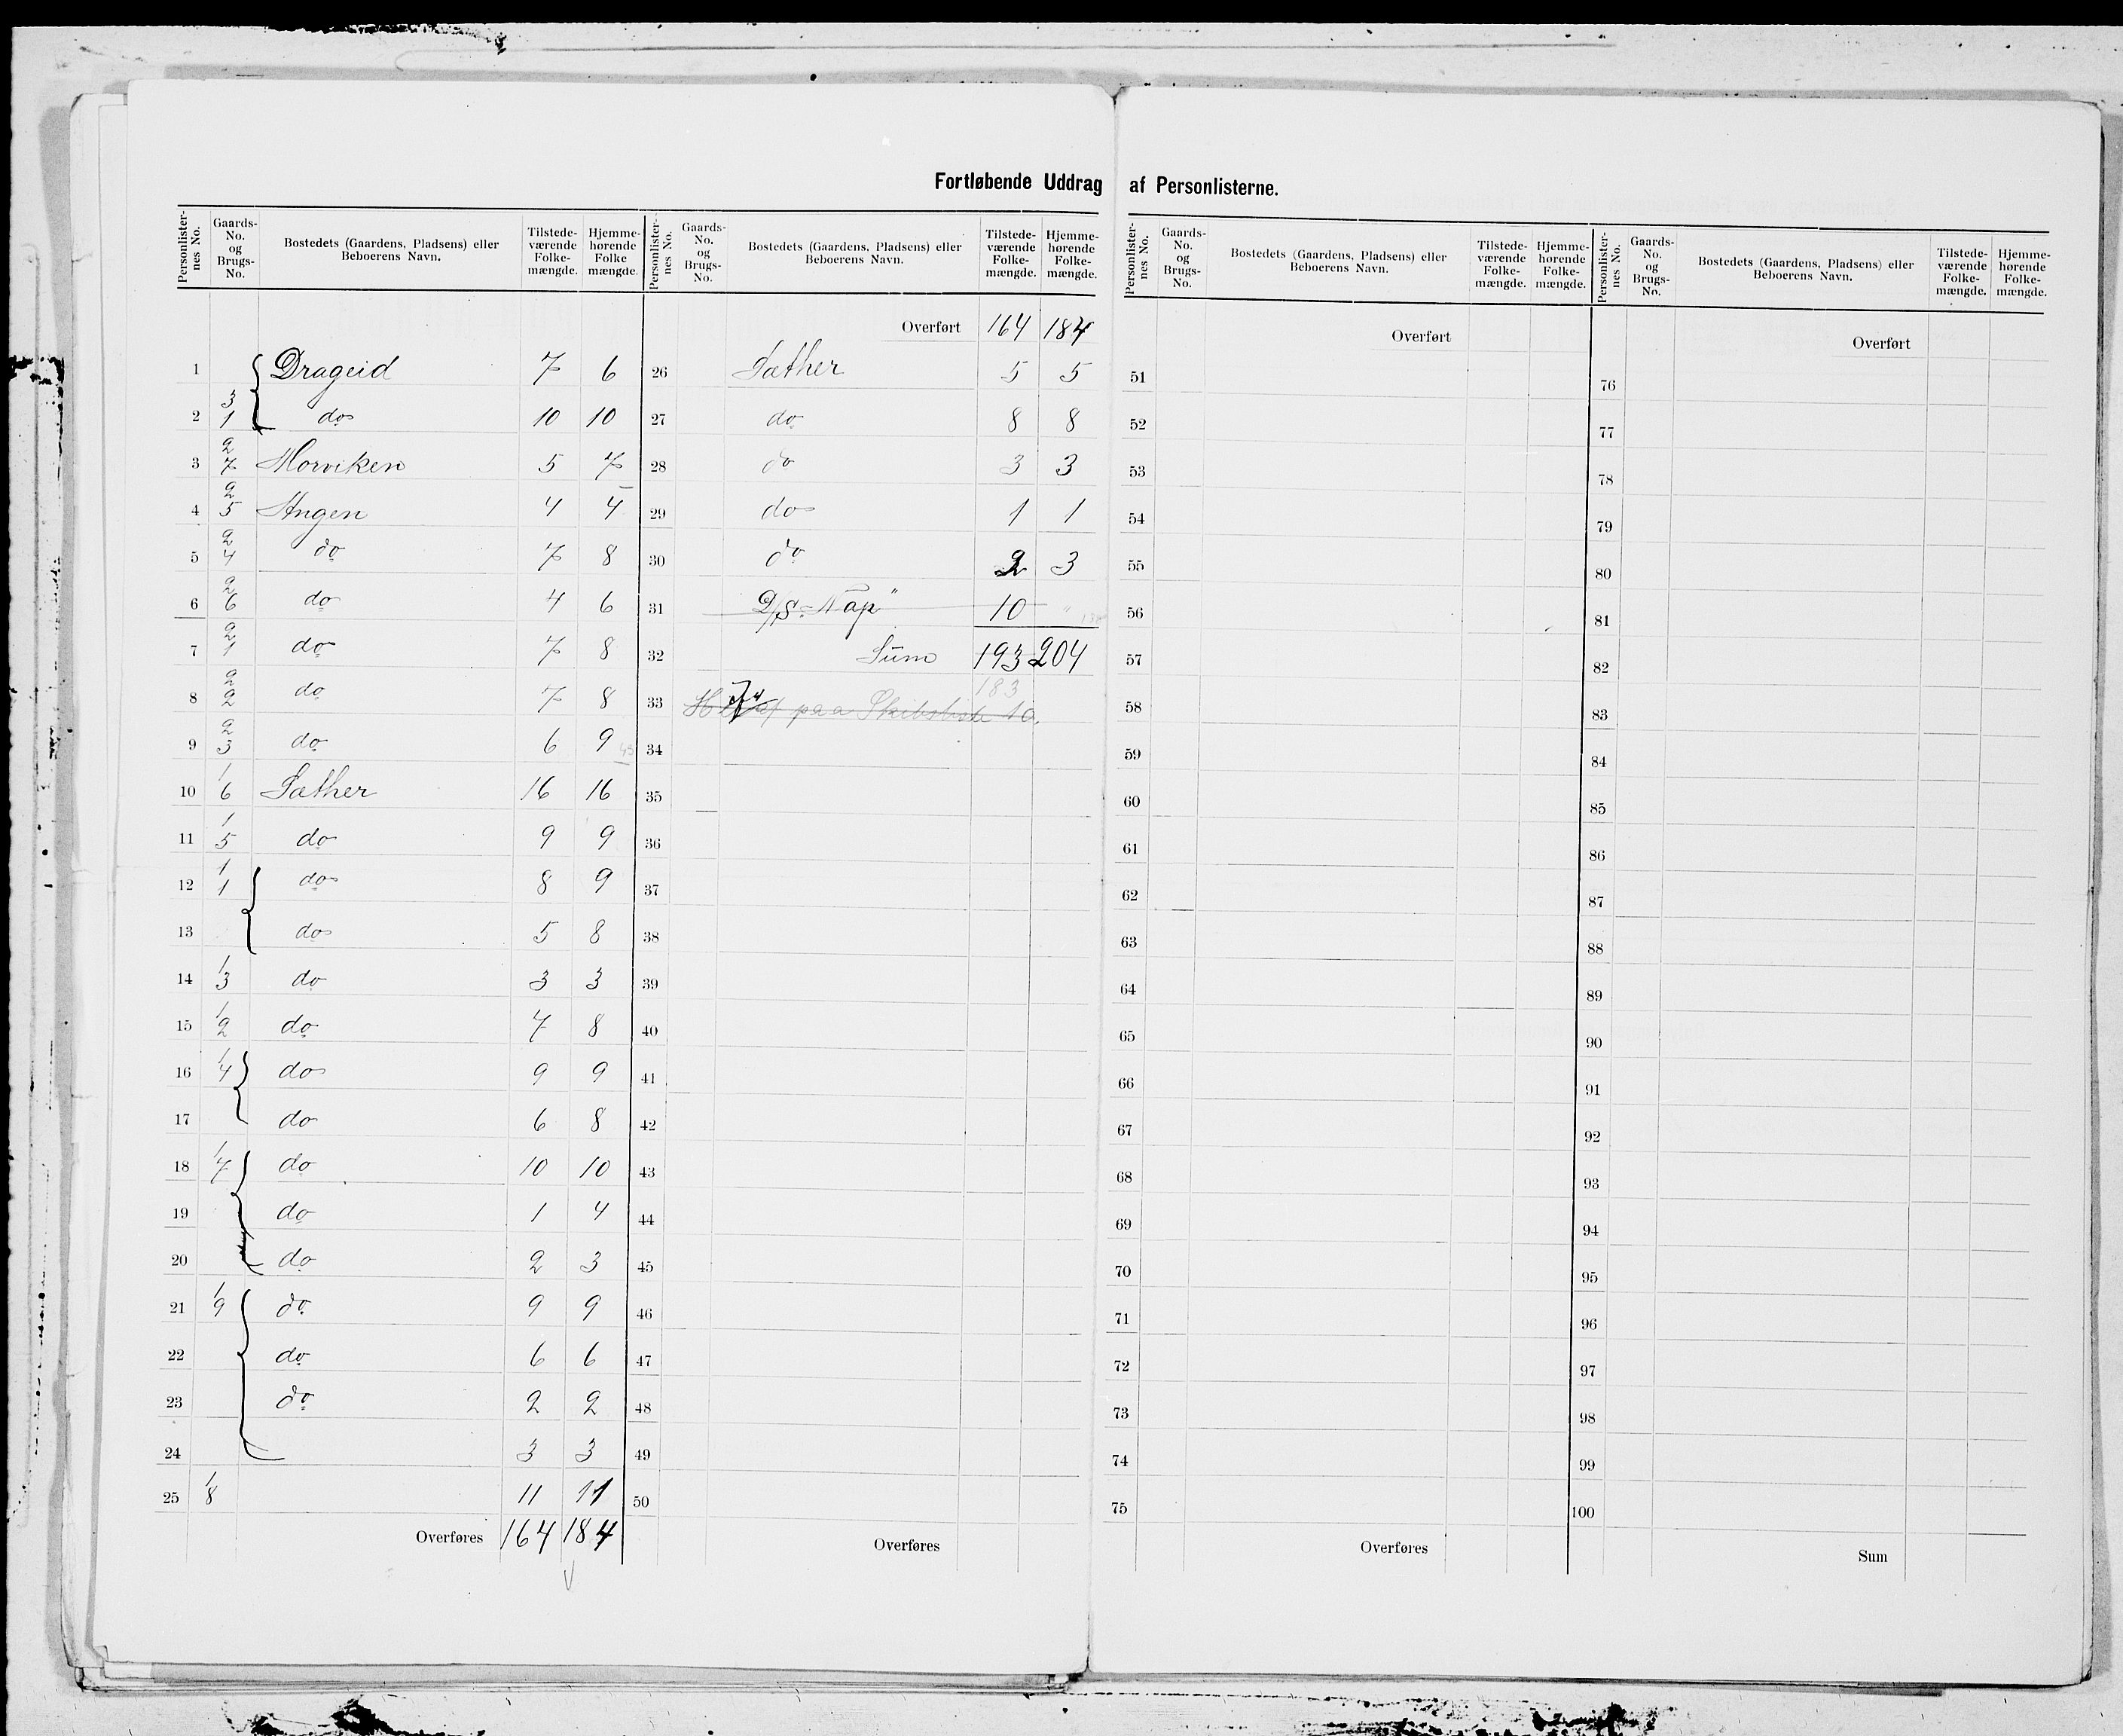 Fortløbende Uddrag af Personlisterne.
Personlisternes No. Gaards-No. og Brugs-No. Bostedets (Gaardens, Pladsens) eller Beboerens Navn. Tilstedeværende Folkemængde. Hjemmehørende Folke mængde.
1 Drageid 7 6
2 3/1 do 10 10
3 2/7 Morviken 5 7
4 2/5 Angen 4 4
5 2/4 do 7 8
6 2/6 do 4 6
7 2/1 do 7 8
8 2/2 do 7 8
9 2/3 do 6 9
10 1/6 Sæther 16 16
11 1/5 do 9 9
12 1/1 do 8 9
13 do 5 8
14 1/3 do 3 3
15 1/2 do 7 8
16 1/4 do 9 9
17 do 6 8
18 1/7 do 10 10
19 do 1 4
20 do 2 3
21 1/9 do 9 9
22 do 6 6
23 do 2 2
24 3 3
25 1/8 11 11
Overføres 164 184
Personlisternes No. Gaards-No. og Brugs-No. Bostedets (Gaardens, Pladsens) eller Beboerens Navn. Tilstedeværende Folkemængde. Hjemmehørende Folkemængde.
Overført 164 184
26 Sæther 5 5
27 do 8 8
28 do 3 3
29 do 1 1
30 do 2 3
31 D/S "Nap" 10 "
32 Sum 193 204
183
33 paa Skibsliste 10.
34
35
36
37
38
39
40
41
42
43
44
45
46
47
48
49
50
Overføres
Personlisternes No. Gaards-No. og Brugs-No. Bostedets (Gaardens, Pladsens) eller Beboerens Navn. Tilstedeværende Folkemængde. Hjemmehørende Folkemængde.
Overført
51
52
53
54
55
56
57
58
59
60
61
62
63
64
65
66
67
68
69
70
71
72
73
74
75
Overføres
Personlisternes No. Gaards-No. og Brugs-No. Bostedets (Gaardens, Pladsens) eller Beboerens Navn. Tilstedeværende Folkemængde. Hjemmehørende Folkemængde.
Overført
76
77
78
79
80
81
82
83
84
85
86
87
88
89
90
91
92
93
94
95
96
97
98
99
100
Sum